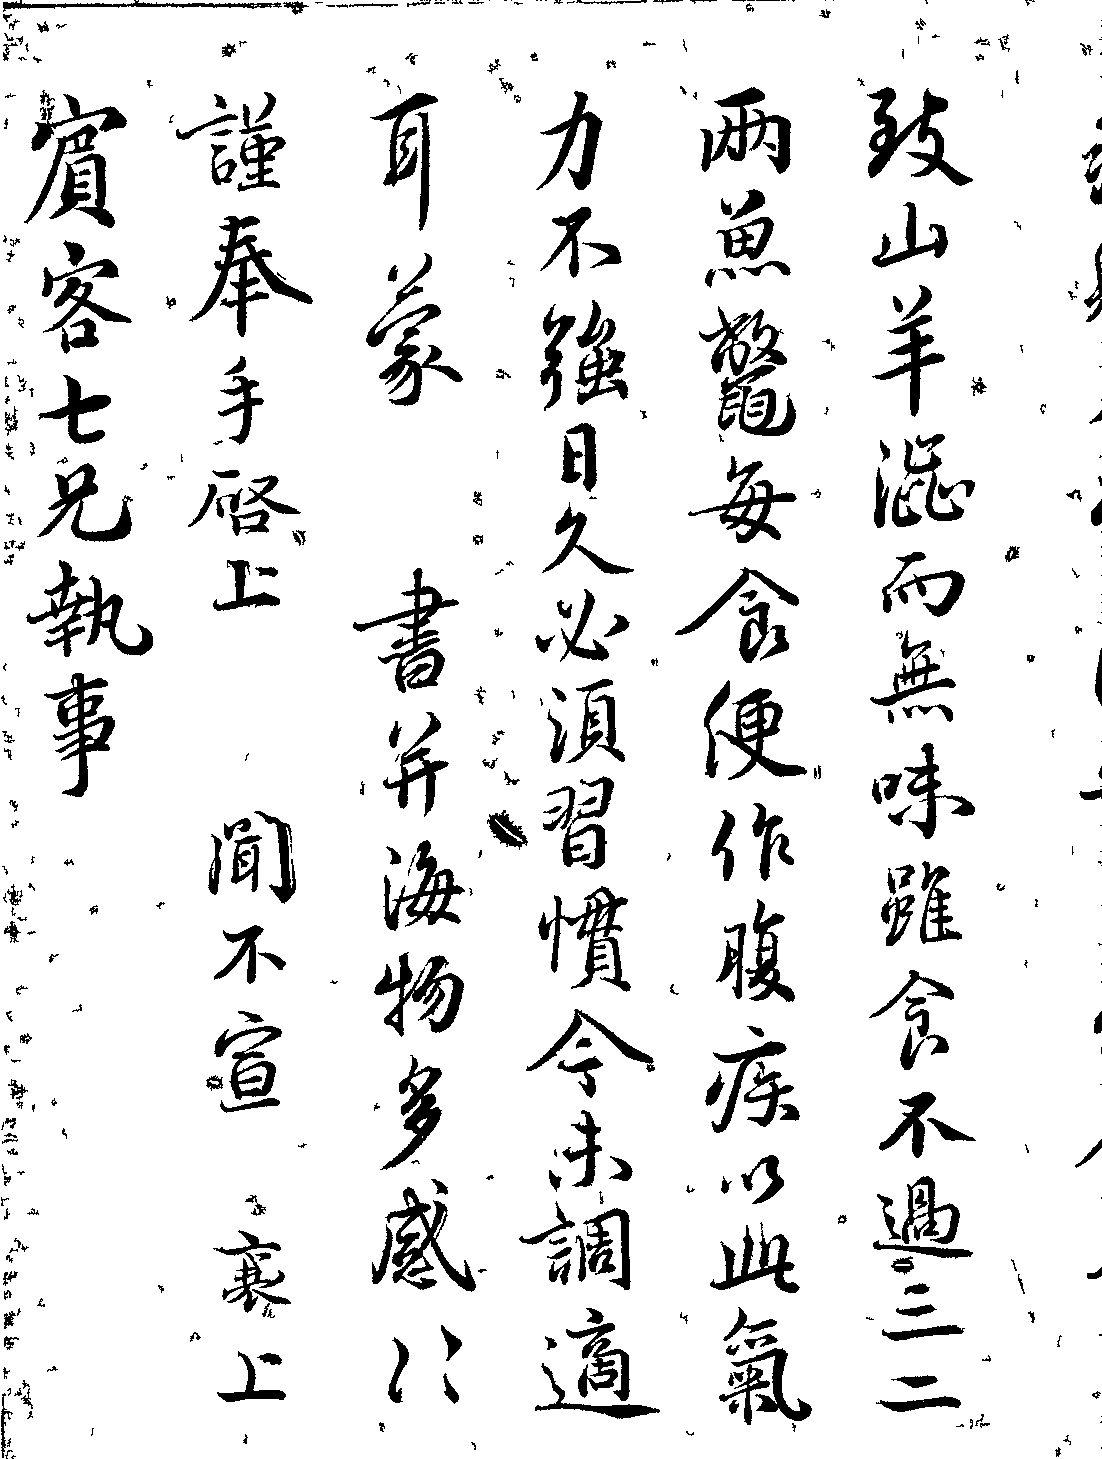 致山羊澁而無味雖食不過三二
兩魚鼈每食便作腹疾以此氣
力不強日久必須習慣今未調適
耳蒙　書并海物多感〻
謹奉手啓上　聞不宣　襄上
賓客七兄執事